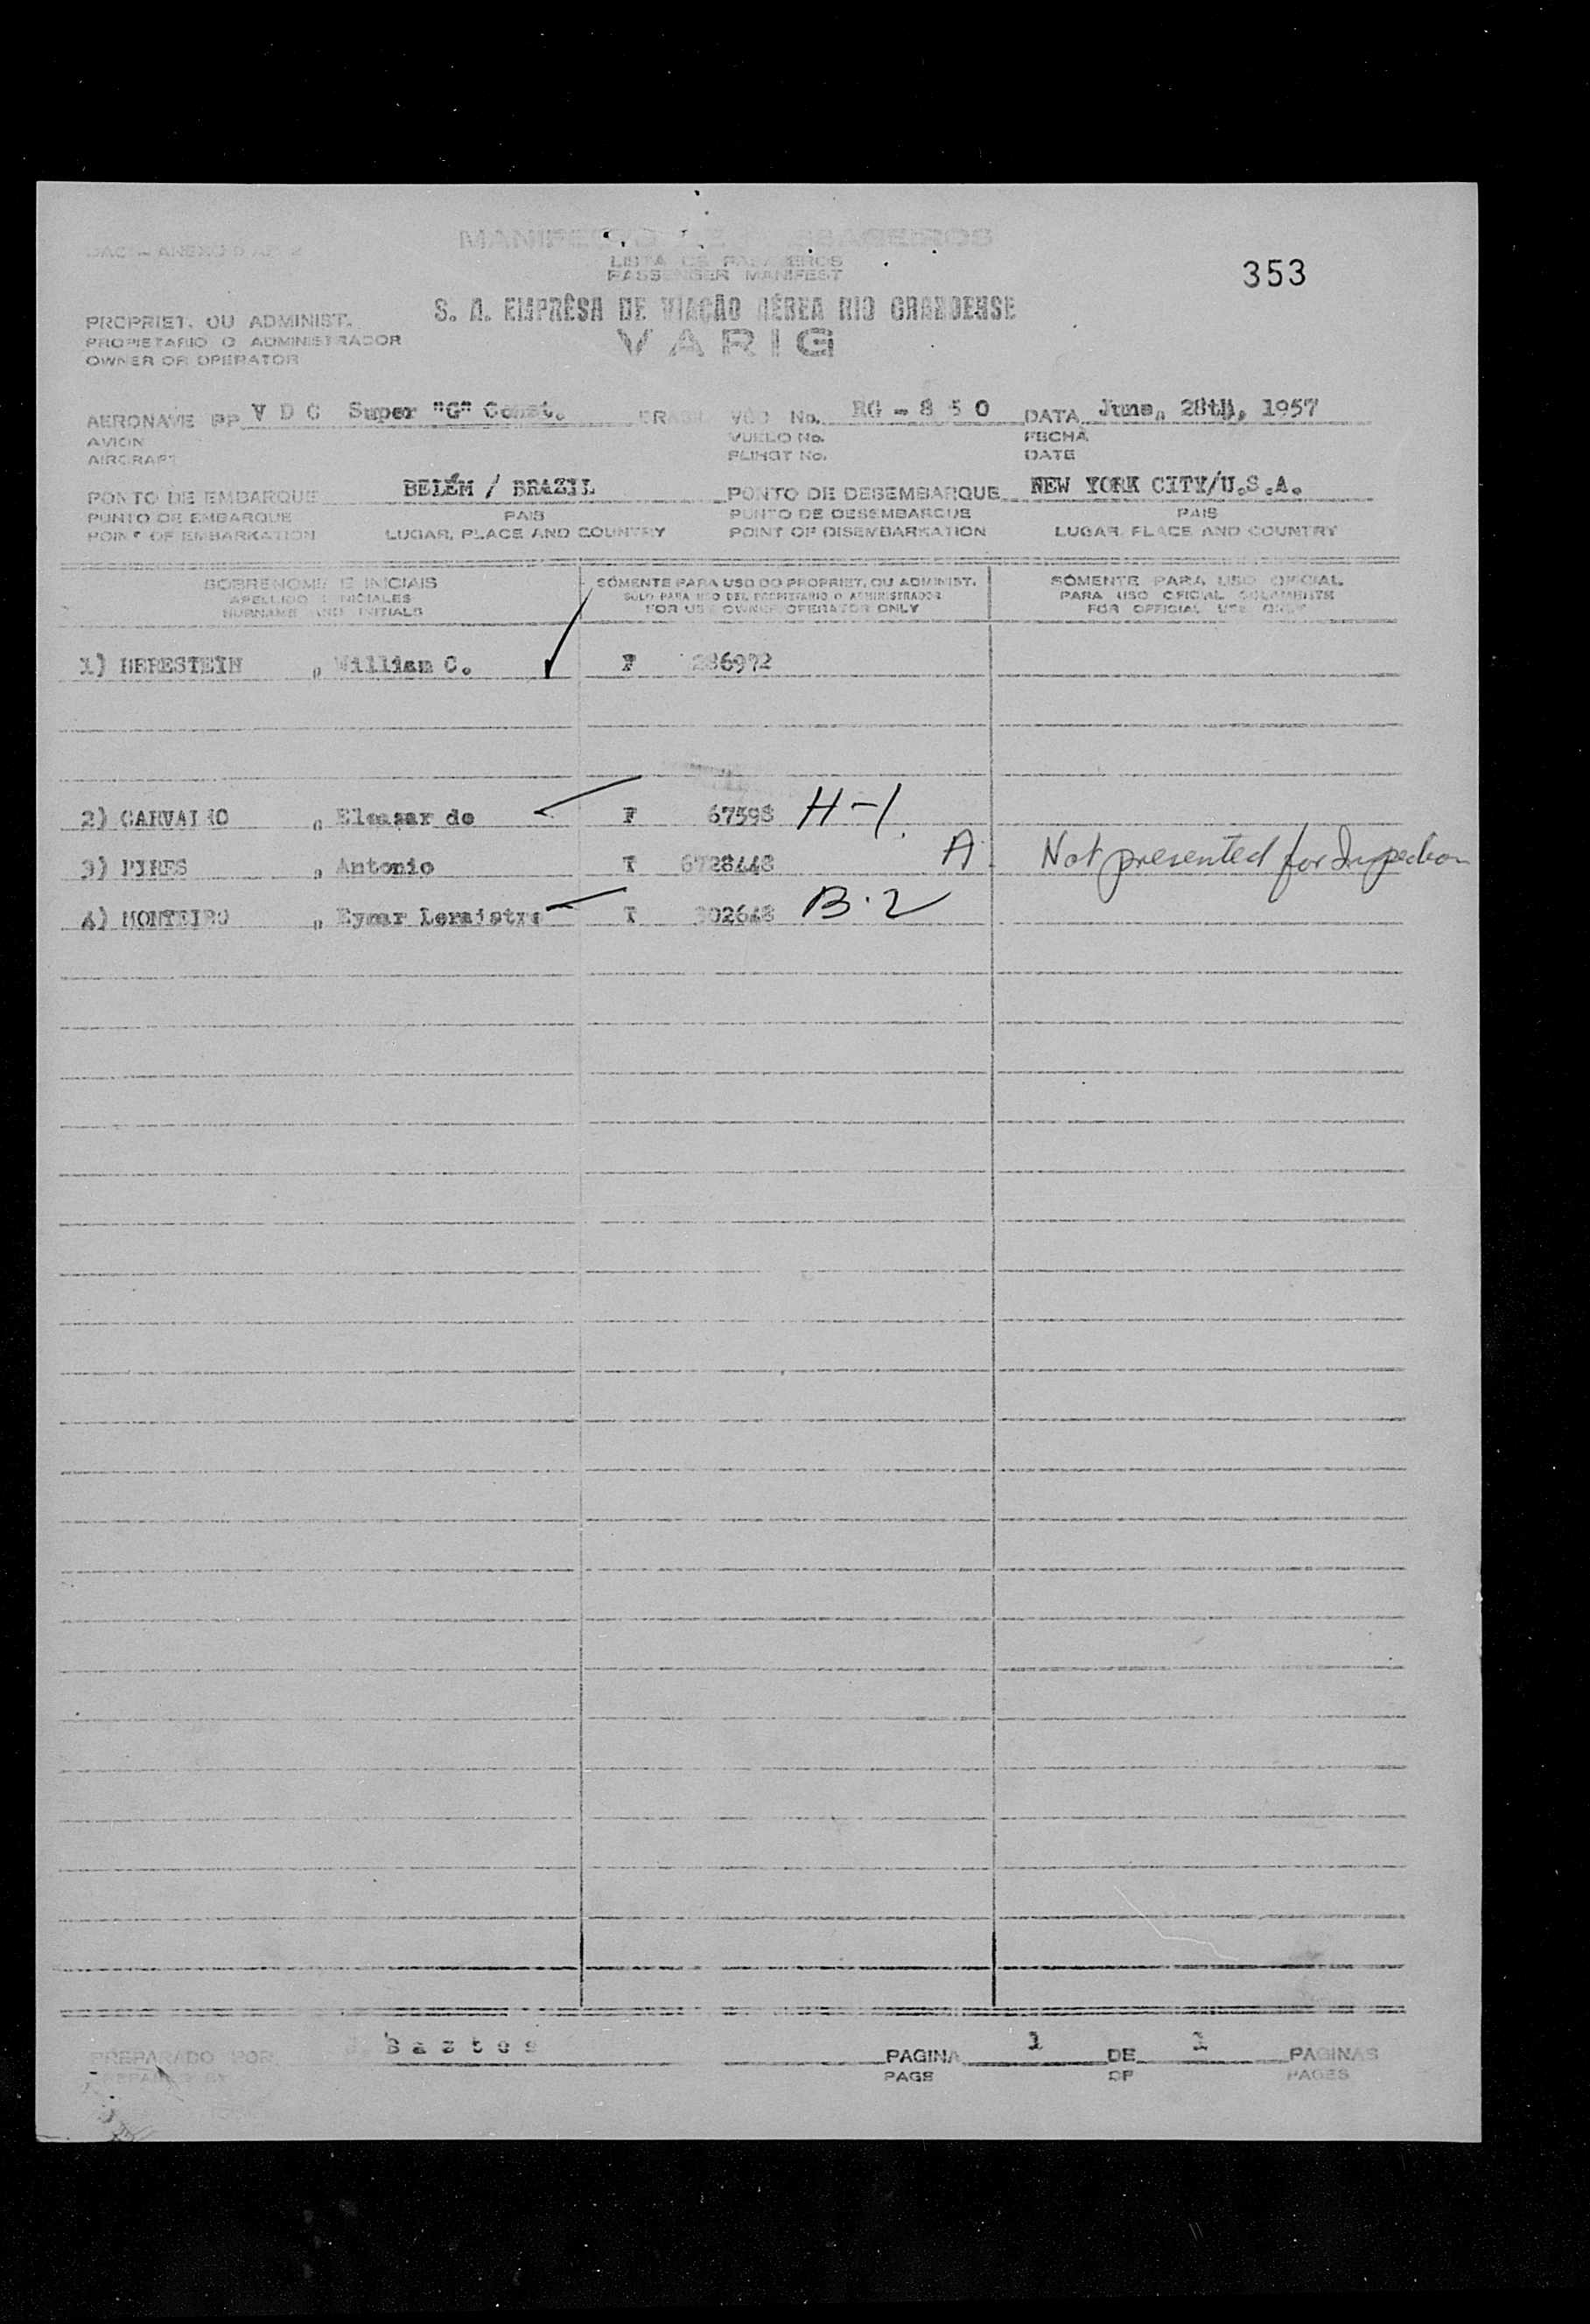 353
LISTA DE PASAJEROS
PASSENGER MANIFEST
S. A. EMPRÊSA DE VIAÇÃO AÉREA RIO GRANDENSE
VARIG
PROPRIET. OU ADMINIST.
PROPIETARIO O ADMINISTRADOR
OWNER OR OPERATOR
AERONAVE PP V D C Super "G" Const. VÔO No. RG - 8 5 0 DATA June, 28th, 1957
AVION VUELO No. FECHA
AIRCRAFT FLIHGT No. DATE
PONTO DE EMBARQUE BELÉM / BRAZIL PONTO DE DESEMBARQUE NEW YORK CITY/U.S.A.
PUNTO DE EMBARQUE PAIS PUNTO DE DESEMBARCUE PAIS
POINT OF EMBARKATION LUGAR, PLACE AND COUNTRY POINT OF DISEMBARKATION LUGAR, PLACE AND COUNTRY
SOBRENOME E INICIAIS SÓMENTE PARA USO DO PROPRIET. OU ADMINIST. SÓMENTE PARA USO OFICIAL
APELLIDO E INICIALES SOLO PARA USO DEL PROPIETARIO O ADMINISTRADOR PARA USO OFICIAL SOLAMENTE
SURNAME AND INITIALS FOR USE OWNER OPERATOR ONLY FOR OFFICIAL USE ONLY
1) , William C. F 286972
2) CARVALHO , Eleazar de F 67598 H-1
3) PIRES , Antonio T 6728448 A Not presented for Inspection
4) MONTEIRO , Eymar T 302648 B-2
PREPARADO POR Bastos PAGINA 1 DE 1 PAGINAS
PREPARED BY PAGE OF PAGES